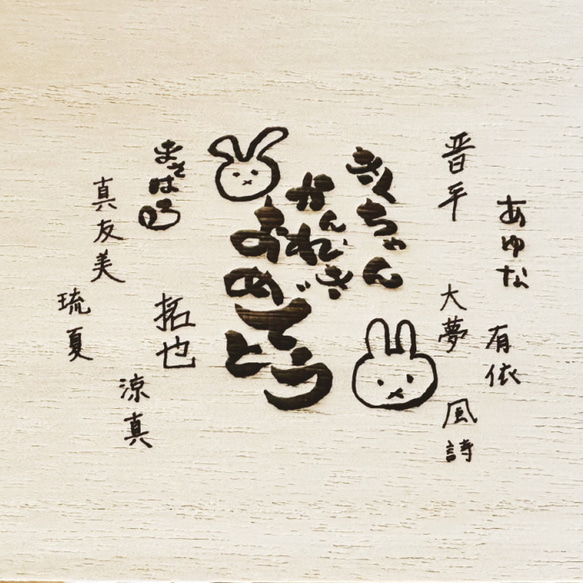 きくちゃん
かんれき
おめでとう
晋平
あゆな
大夢
有依
風詩
まさはる
真友美
琉夏
拓也
涼真